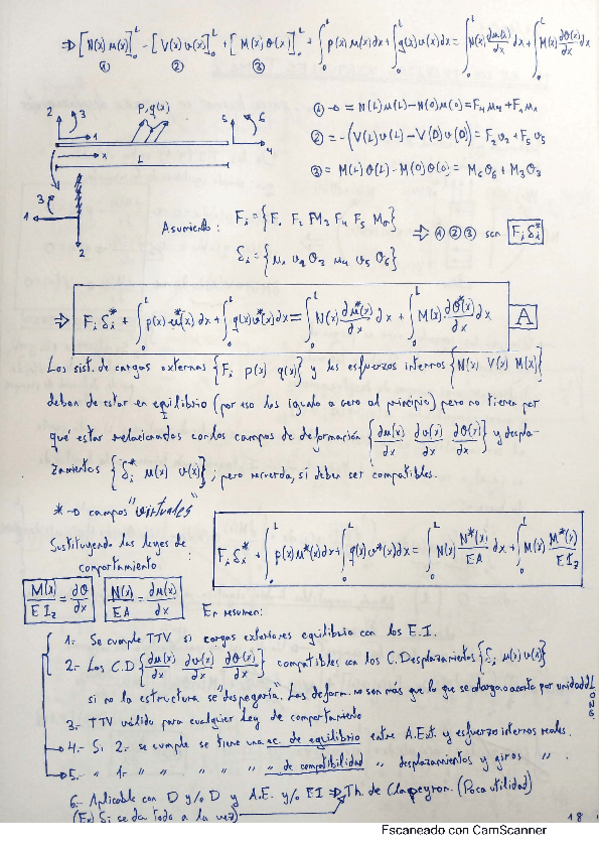 ⇒ [N(x)u(x)]₀ᴸ - [V(x)v(x)]₀ᴸ + [M(x)θ(x)]₀ᴸ + ∫₀ᴸ p(x)u(x)dx + ∫₀ᴸ q(x)v(x)dx = ∫₀ᴸ N(x) du(x)/dx dx + ∫₀ᴸ M(x) dθ(x)/dx dx
① ② ③
P, q(x)
2 3 1 5 6 4
x
L
3
1
2
① → = N(L)u(L) - N(0)u(0) = F₄u₄ + F₁u₁
② = -(V(L)v(L) - V(0)v(0)) = F₂v₂ + F₅v₅
③ = M(L)θ(L) - M(0)θ(0) = M₆θ₆ + M₃θ₃
Asumiendo: Fᵢ = {F₁ F₂ M₃ F₄ F₅ M₆}
δᵢ = {u₁ v₂ θ₃ u₄ v₅ θ₆}
⇒ ① ② ③ son Fᵢδᵢ*
⇒ Fᵢδᵢ* + ∫₀ᴸ p(x)u*(x)dx + ∫₀ᴸ q(x)v*(x)dx = ∫₀ᴸ N(x) du*(x)/dx dx + ∫₀ᴸ M(x) dθ*(x)/dx dx A
Los sist. de cargas externas {Fᵢ p(x) q(x)} y los esfuerzos internos {N(x) V(x) M(x)}
deban de estar en equilibrio (por eso los igualo a cero al principio) pero no tienen por
qué estar relacionados con los campos de deformación {du(x)/dx dv(x)/dx dθ(x)/dx} y despla-
zamientos {δᵢ* u(x) v(x)}; pero recuerda, si deben ser compatibles.
* → campos "virtuales"
Sustituyendo las leyes de
comportamiento:
Fᵢδᵢ* + ∫₀ᴸ p(x)u*(x)dx + ∫₀ᴸ q(x)v*(x)dx = ∫₀ᴸ N(x) N*(x)/EA dx + ∫₀ᴸ M(x) M*(x)/EI_z
M(x)/EI_z = dθ/dx N(x)/EA = du(x)/dx
En resumen:
1.- Se cumple TTV si cargas exteriores equilibrio con los E.I.
2.- Los C.D {du(x)/dx dv(x)/dx dθ(x)/dx} compatibles con los C.Desplazamientos {δᵢ u(x) v(x)}
si no la estructura se "despegaría". Las deform. no son más que lo que se alarga o acorta por unidad d LONG.
3.- TTV válido para cualquier Ley de comportamiento
4.- Si 2.- se cumple se tiene una ec. de equilibrio entre A.Ext. y esfuerzo internos reales.
5.- " 1.- " " " " " " de compatibilidad " desplazamientos y giros "
6.- Aplicable con D y/o D y A.E. y/o EI ⇒ Th. de Clapeyron. (Poca utilidad)
(Ex) Si se da todo a la vez)
18
Escaneado con CamScanner